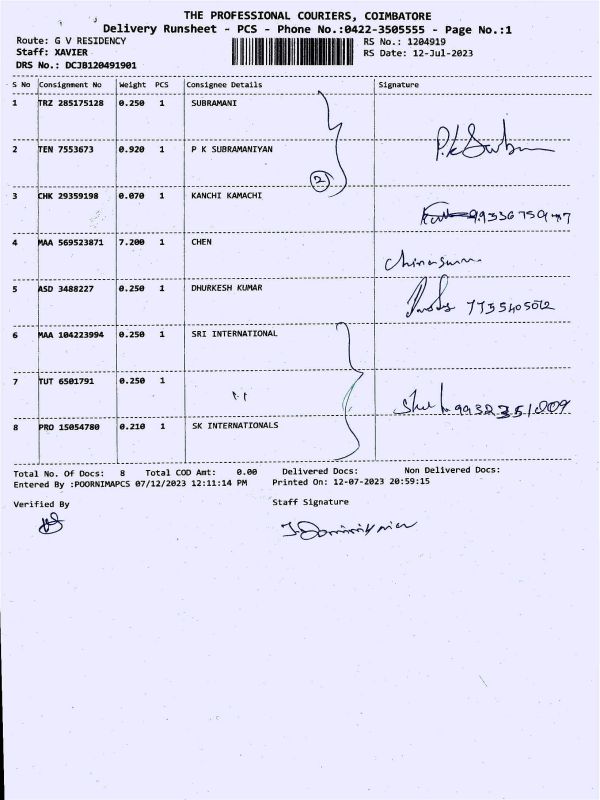 THE PROFESSIONAL COURIERS, COIMBATORE
Delivery Runsheet - PCS - Phone No.:0422-3505555 - Page No.:1
Route: G V RESIDENCY RS No.: 1204919
Staff: XAVIER RS Date: 12-Jul-2023
DRS No.: DCJB120491901
S No Consignment No Weight PCS Consignee Details Signature
1 TRZ 285175128 0.250 1 SUBRAMANI
2 TEN 7553673 0.920 1 P K SUBRAMANIYAN P.K Subm
2
3 CHK 29359198 0.070 1 KANCHI KAMACHI
4 MAA 569523871 7.200 1 CHEN
5 ASD 3488227 0.250 1 DHURKESH KUMAR
6 MAA 104223994 0.250 1 SRI INTERNATIONAL
7 TUT 6501791 0.250 1
8 PRO 15054780 0.210 1 SK INTERNATIONALS
Total No. Of Docs: 8 Total COD Amt: 0.00 Delivered Docs: Non Delivered Docs:
Entered By :POORNIMAPCS 07/12/2023 12:11:14 PM Printed On: 12-07-2023 20:59:15
Verified By Staff Signature